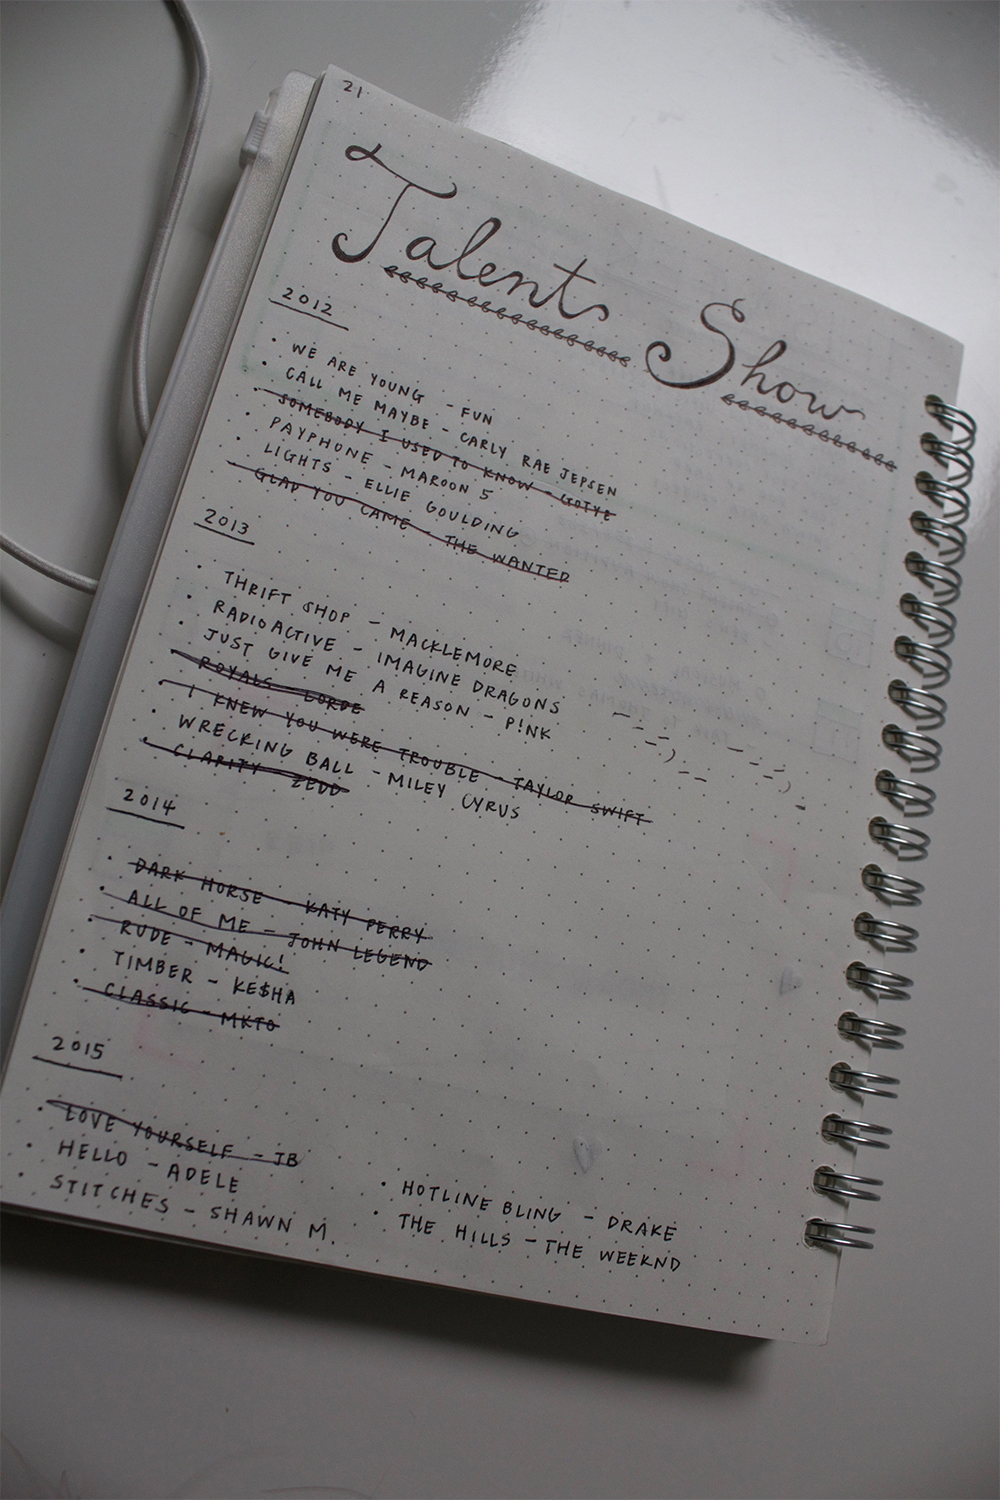 21
Talent Show
2012
• WE ARE YOUNG - FUN
• CALL ME MAYBE - CARLY RAE JEPSEN
• SOMEBODY I USED TO KNOW - GOTYE
• PAYPHONE - MAROON 5
• LIGHTS - ELLIE GOULDING
• GLAD YOU CAME - THE WANTED
2013
• THRIFT SHOP - MACKLEMORE
• RADIOACTIVE - IMAGINE DRAGONS
• JUST GIVE ME A REASON - P!NK
• ROYALS - LORDE
• I KNEW YOU WERE TROUBLE - TAYLOR SWIFT
• WRECKING BALL - MILEY CYRUS
• CLARITY - ZEDD
2014
• DARK HORSE - KATY PERRY
• ALL OF ME - JOHN LEGEND
• RUDE - MAGIC!
• TIMBER - KE$HA
• CLASSIC - MKTO
2015
• LOVE YOURSELF - JB
• HELLO - ADELE
• STITCHES - SHAWN M.
• HOTLINE BLING - DRAKE
• THE HILLS - THE WEEKND